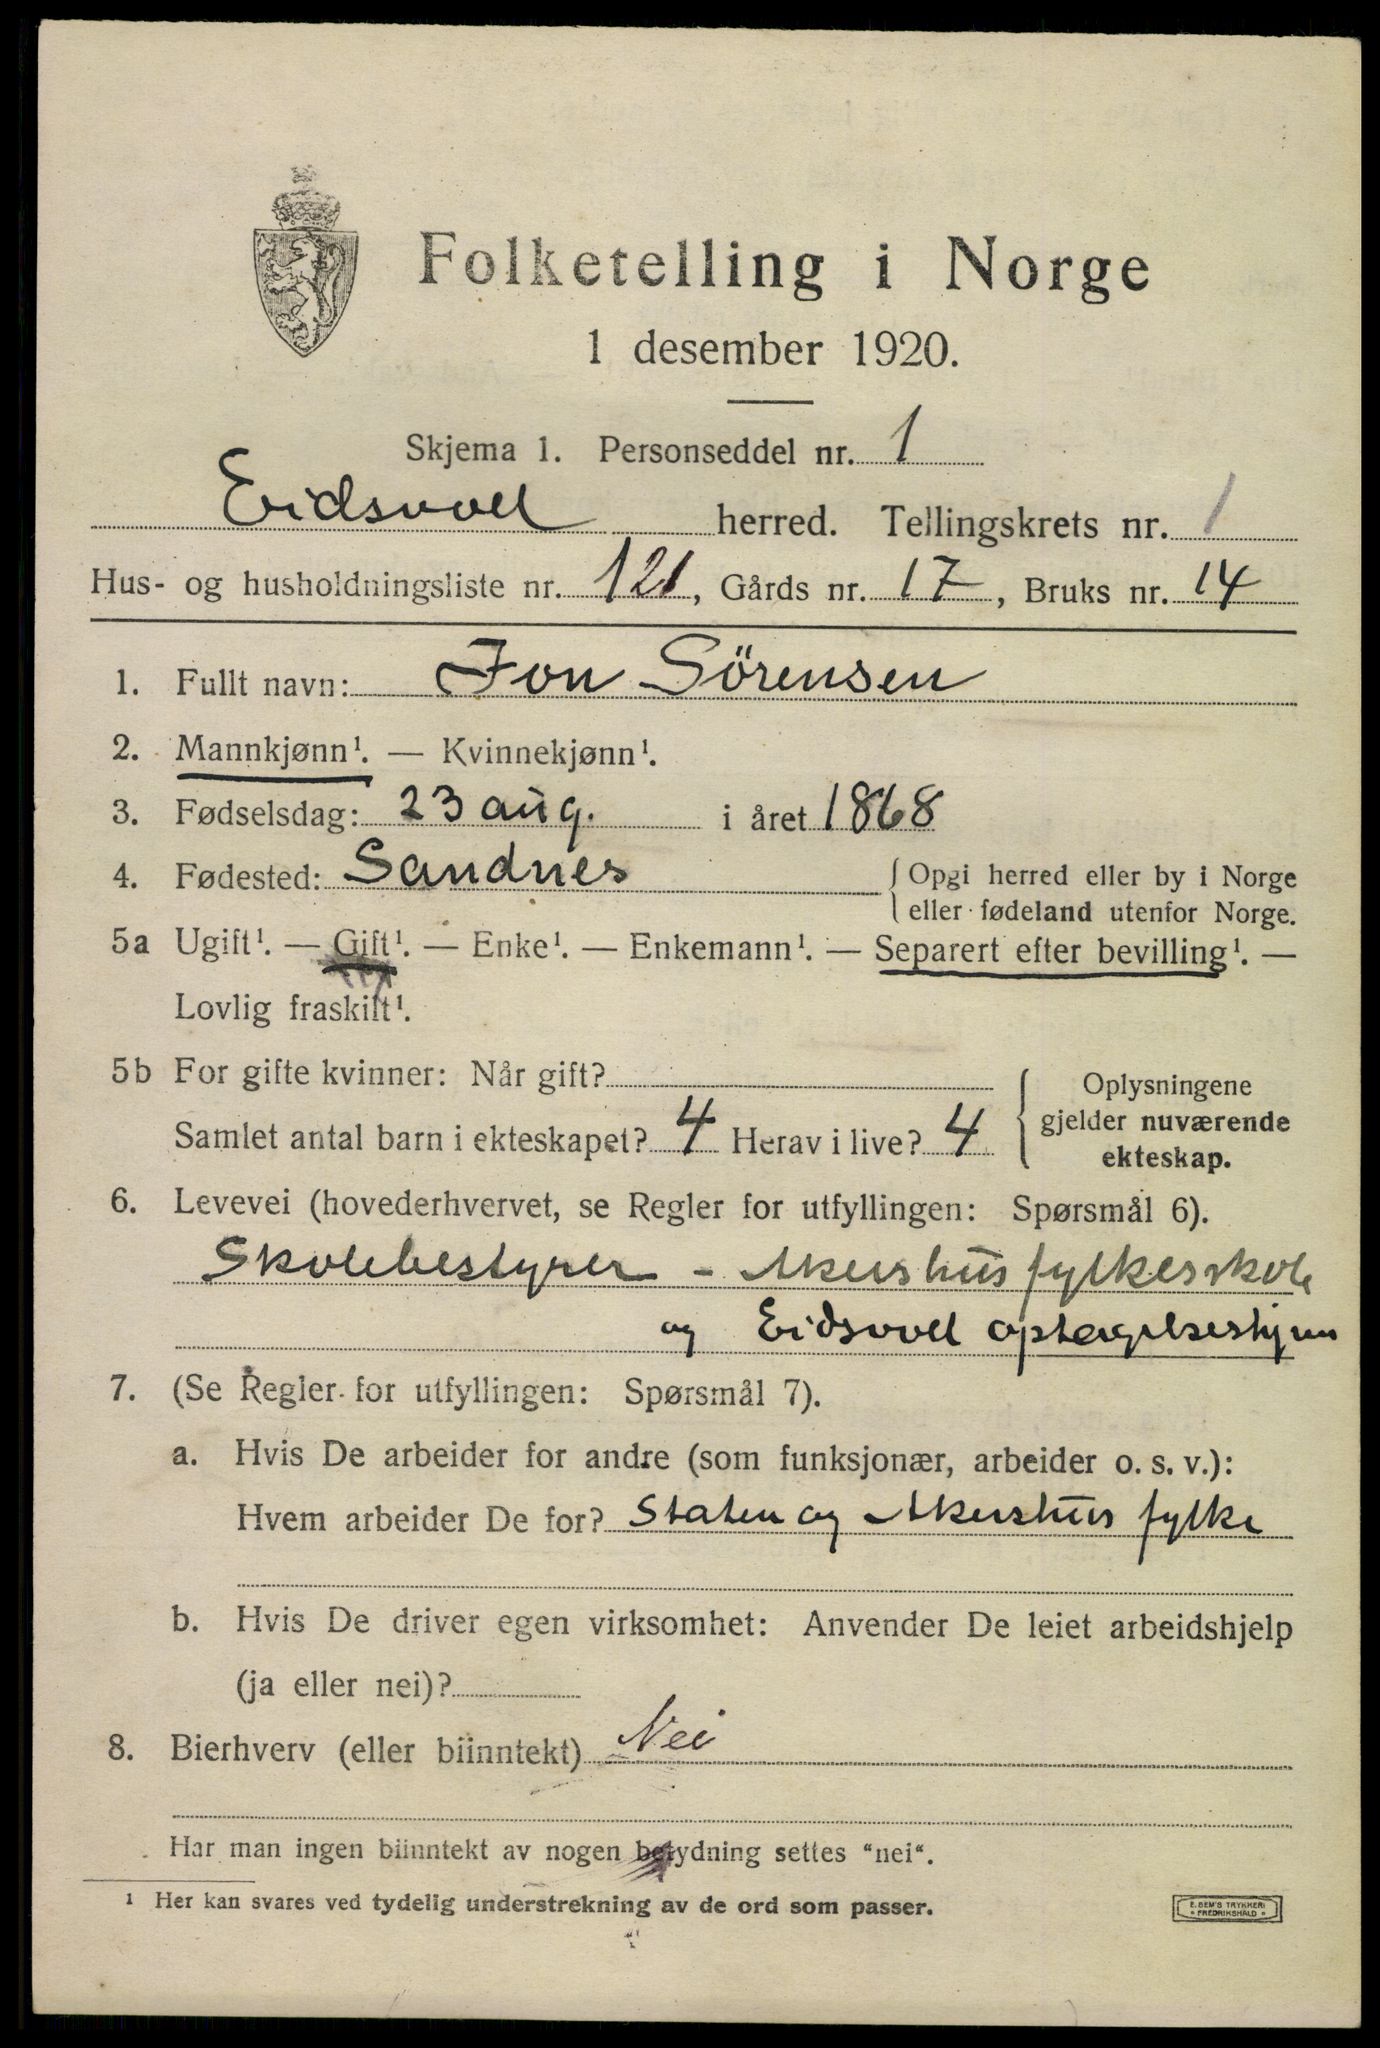 Folketelling i Norge
1 desember 1920.
Skjema 1. Personseddel nr. 1
Eidsvoll herred. Tellingskrets nr. 1
Hus- og husholdningsliste nr. 121, Gårds nr. 17, Bruks nr. 14
1. Fullt navn: Jon Sörensen
2. Mannkjønn¹. — Kvinnekjønn¹.
3. Fødselsdag: 23 aug. i året 1868
4. Fødested: Sandnes
{ Opgi herred eller by i Norge
eller fødeland utenfor Norge.
5a Ugift¹. — Gift¹. — Enke¹. — Enkemann¹. — Separert efter bevilling¹. —
Lovlig fraskilt¹.
5b For gifte kvinner: Når gift?
Samlet antal barn i ekteskapet? 4 Herav i live? 4
{ Oplysningene
gjelder nuværende
ekteskap.
6. Levevei (hovederhvervet, se Regler for utfyllingen: Spørsmål 6).
Skolebestyrer - Akershus fylkesskole
og Eidsvoll
7. (Se Regler for utfyllingen: Spørsmål 7).
a. Hvis De arbeider for andre (som funksjonær, arbeider o. s. v.):
Hvem arbeider De for? Staten og Akershus fylke
b. Hvis De driver egen virksomhet: Anvender De leiet arbeidshjelp
(ja eller nei)?
8. Bierhverv (eller biinntekt) Nei
Har man ingen biinntekt av nogen betydning settes "nei".
¹ Her kan svares ved tydelig understrekning av de ord som passer.
E. SEM'S TRYKKERI
* FREDRIKSHALD *